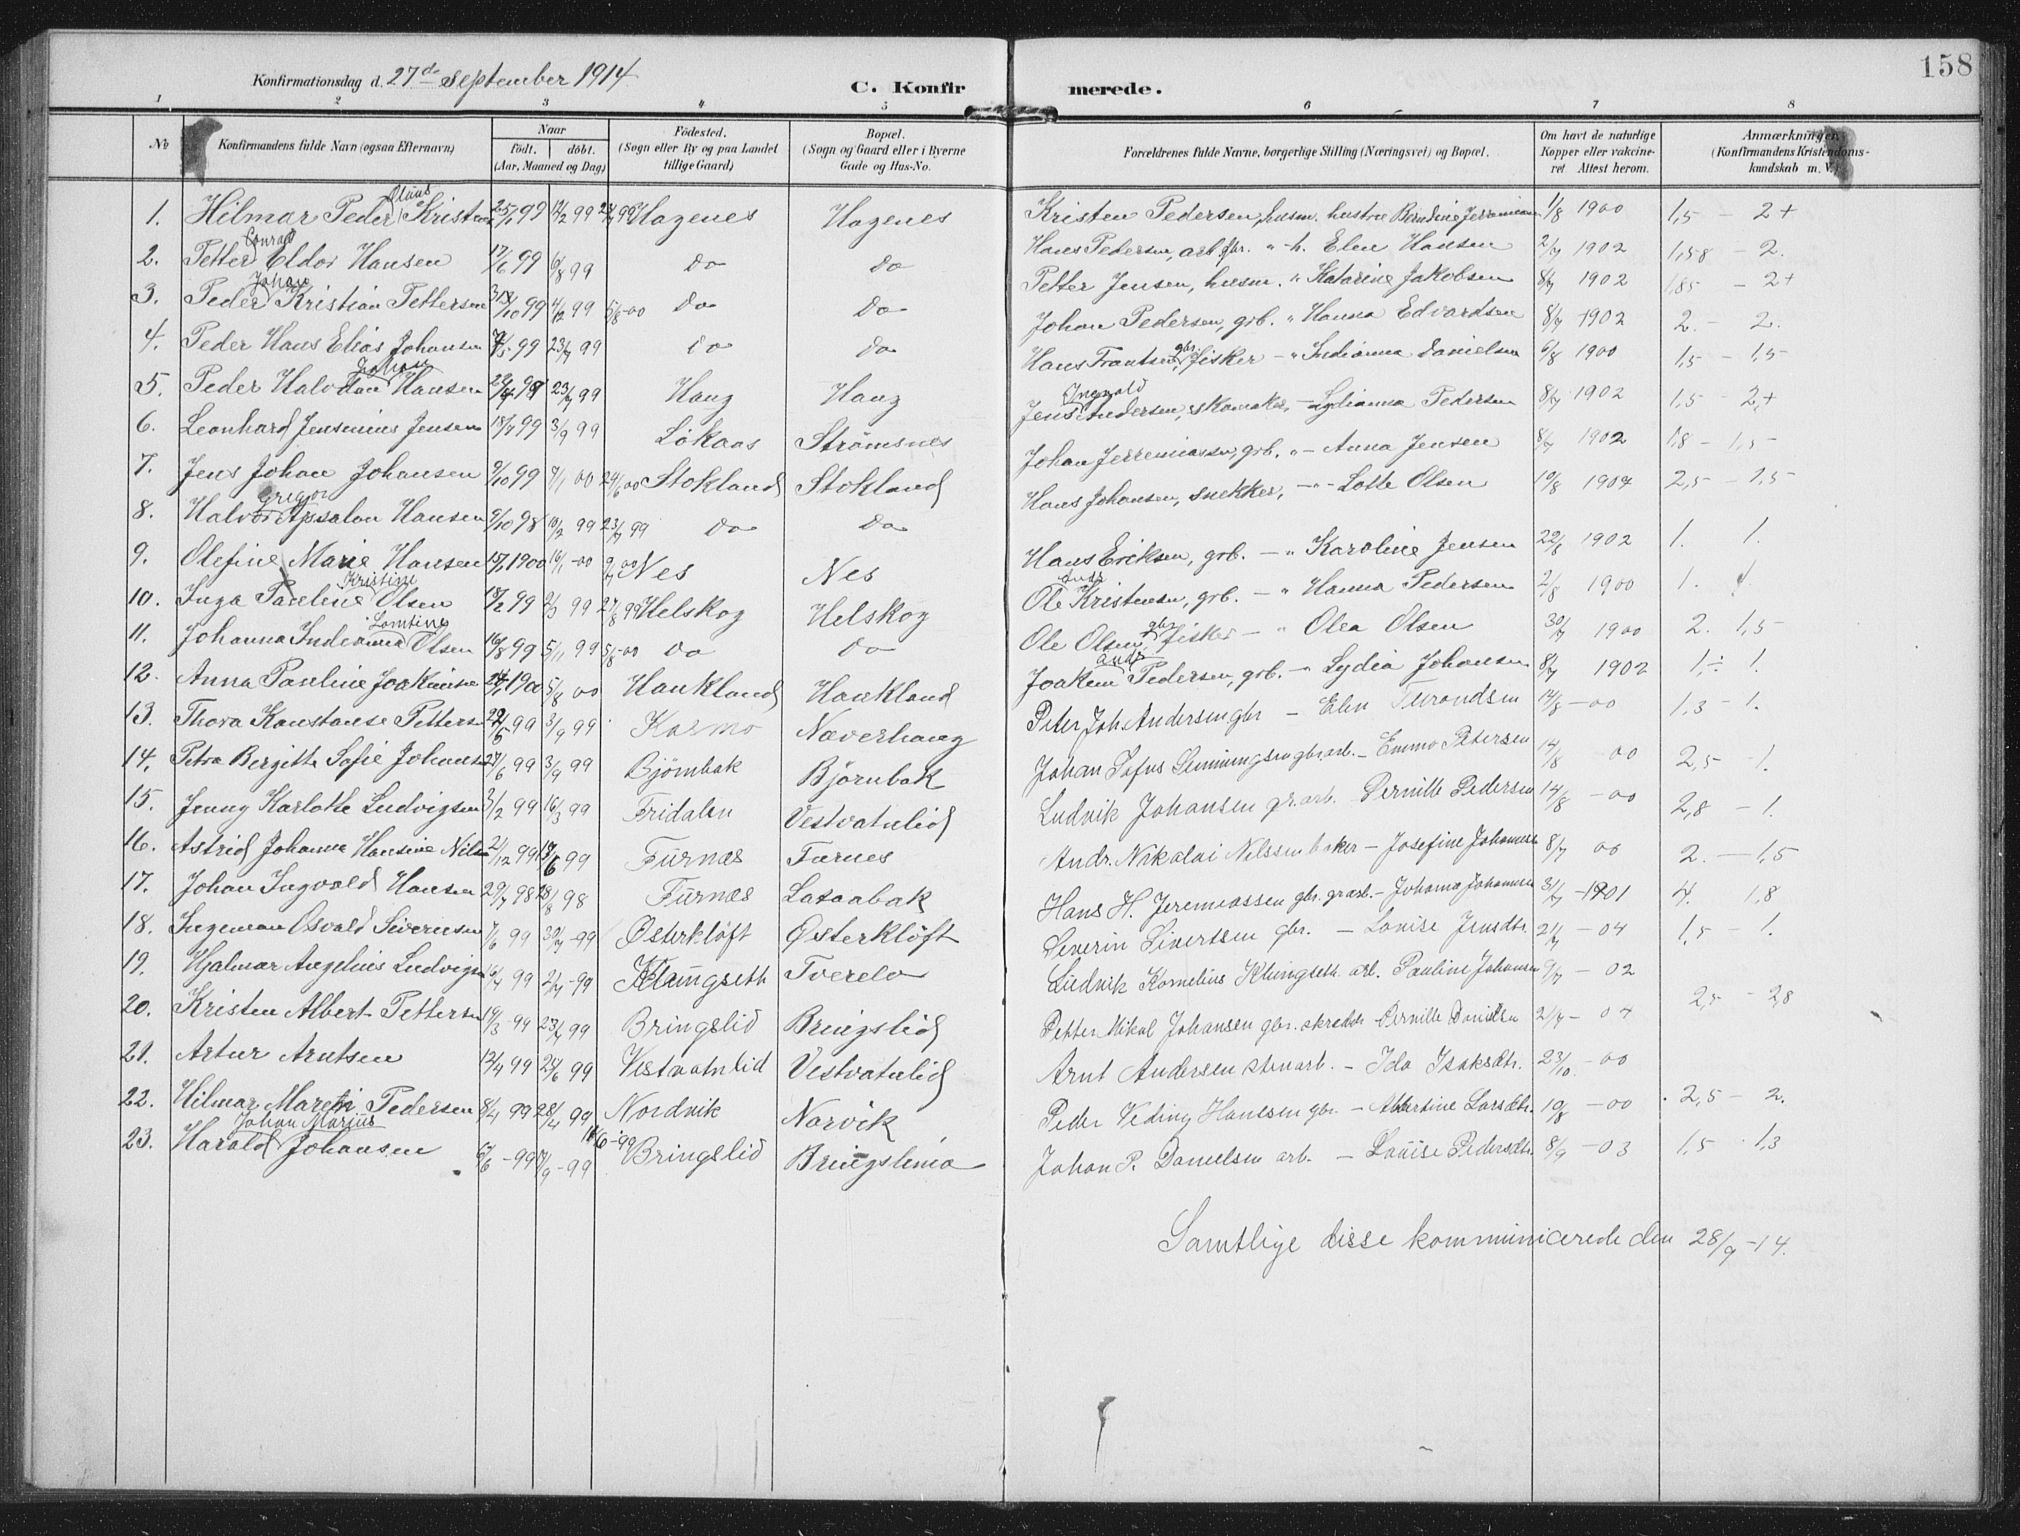 158
Konfirmationsdag d. 27de September 1914
C. Konfirmerede.
1 2 3 4 5 6 7 8
No
Konfirmandens fulde Navn (ogsaa Efternavn)
Naar
födt. döbt.
(Aar, Maaned og Dag)
Födested.
(Sogn eller By og paa Landet
tillige Gaard)
Bopæl.
(Sogn og Gaard eller i Byerne
Gade og Hus-No.
Forældrenes fulde Navne, borgerlige Stilling (Næringsvei) og Bopæl.
Om havt de naturlige
Kopper eller vakcine-
ret Attest herom.
Anmærkninger
(Konfirmandens Kristendoms-
kundskab m. V.)
1. Hilmar Peder Olaus 99 12/2 99 99 Hagenes Hagenes Kristen Pedersen, husm. hustru 1/8 1900 1,5 - 2+
2. Petter Conrad Eldor Hansen 17/6 99 6/8 99 Do Do Hans Pedersen, arb gbr. " h. Elen Hansen 2/7 1902 1,58 - 2.
3. Peder Johan Kristian Pettersen /10 99 4/12 99 5/8-00 Do Do Petter Jensen, husm. " Katarine Jakobsen 8/7 1902 1,85 - 2+
4. Peder Hans Elias Johansen 99 23/7 99 Do Do Johan Pedersen, grb. " Hanna Edvardsen 8/7 1902 2. - 2.
5. Peder Halvdan Johan Hansen 99 23/7 99 Haug Haug Hans Frantsen gbr. fisker - " Indianna Danielsen 6/8 1900 1,5 - 1,5
6. Leonhard Jensenius Jensen 99 3/9 99 Løkaas Strømsnes Jens Ingvald Andersen, skomaker, - Lydianna Pedersen 8/7 1902 1,5 - 2,+
7. Jens Johan Johansen 9/10 99 7/1 00 24/6 00 Stokland Stokland Johan Jerremiassen, grb. " - Anna Jensen 8/7 1902 1,8 - 1,5
8. Halvor Gregor Apsalon Hansen 9/10 98 10/2 99 23/7 99 Do Do Hans Johansen, snekker, - " - Lotte Olsen 10/8 1904 2,5 - 1,5
9. Olefine Marie Hansen 1900 16/1-00 9/7 00 Nes Nes Hans Eriksen, grb. - " Karoline Jensen 22/8 1902 1. 1.
10. Inga Pauline Kristine Olsen 99 2/3 99 27/8 99 Helskog Helskog Ole Andr Kristensen, grb. - " Hanna Pedersen 2/8 1900 1. 1
11. Johanna Indianna Olsen 16/8 99 5/11 99 5/8-00 Do Do Ole Olsen gbr fisker - " Olea Olsen 30/7 1900 2. 1,5
12. Anna Pauline 1900 5/8 00 Haukland Haukland Joakem Andr Pedersen, grb. - " Lydia Johansen 8/7 1902 1,÷ 1.
13. Thora Konstanse Petters 99 3/9 99 Karmo Næverhaug Peter Joh. Andersen gbr - Elen 14/8 -00 1,3 - 1.
14. Petra Bergitte Sofie Johans 27/6 99 3/9 99 Bjørnbak Bjørnbak Johan Sofus gbr.arb. - Emma Petersen 14/8 00 2,5 - 1.
15. Jenny Karlotte Ludvigsen 3/2 99 16/3 99 Fridalen Vestvatnlid Ludvik Johansen gr.arb. Pernille Pedersen 14/8 -00 2,8 - 1.
16. Astrid Johanna Hansine Nils 21/12 99 99 Furnæs Furnes Andr. Nikolai Nilssen baker - Josefine Johannes 8/7 00 2. - 1,5
17. Johan Ingvald Hansen 29/7 98 28/8 98 Furnæs Lataabak Hans H. Jeremiassen gbr. gr.arb. - Johanna Johannes 31/7 -1901 4. 1,8
18. Ingeman Osvald Severinsen 7/6 99 30/7 -99 Østerkløft Østerkløft Severin Sivertsen gbr. - Lovise Jensdtr. 21/7 - 04 1,5 - 1.
19. Hjalmar Angelius Ludvigs 16/4 99 2/7 -99 Klungseth Tverelv Ludvik Kornelius Klungseth arb. Pauline Johansen 9/7 - 02
20. Kristen Albert Petters 19/3 -99 23/7 99 Bringslid Bringslid Petter Mikal Johansen gbr. skredder Pernille Danielsen 21/7 - 04 2,5 - 2,8
21. Artur Arntsen 13/4 99 25/6 99 Vestvatnlid Vestvatnlid Arnt Andersen stenarb. - Ida Isaksdtr. 23/10 -00
22. Hilmar Martin Pedersen 8/4 99 28/4 99 Nordvik Norvik Peder Hanssen gbr. - Albertine Larsdtr. 10/8 -00 2,5 - 2.
23. Harald Johan Marius Johansen /6 -99 /9 -99 Bringslid Johan P. Danielsen arb. - Louise Pedersdtr. 8/9 - 03 1,5 1,3
Samtlige disse kommunicerede den 28/9 - 14.